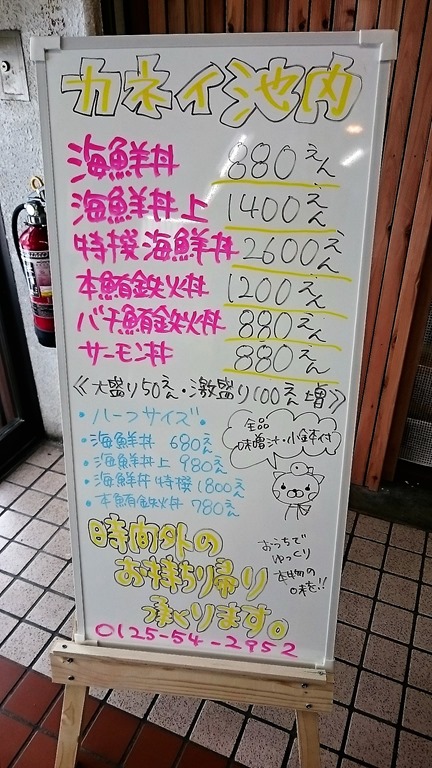 カネイ池内
海鮮丼 880えん
海鮮丼上 1400えん
特撰海鮮丼 2600えん
本鮪鉄火丼 1200えん
バチ鮪鉄火丼 880えん
サーモン丼 880えん
《大盛り50えん・激盛り100えん増》
・ハーフサイズ・
・海鮮丼 680えん
・海鮮丼上 980えん
・海鮮丼特撰 1800えん
・本鮪鉄火丼 780えん
全品
味噌汁・小鉢付
おうちで
ゆっくり
本物の
味を!!
時間外の
お持ち帰り
承ります。
0125-54-2952